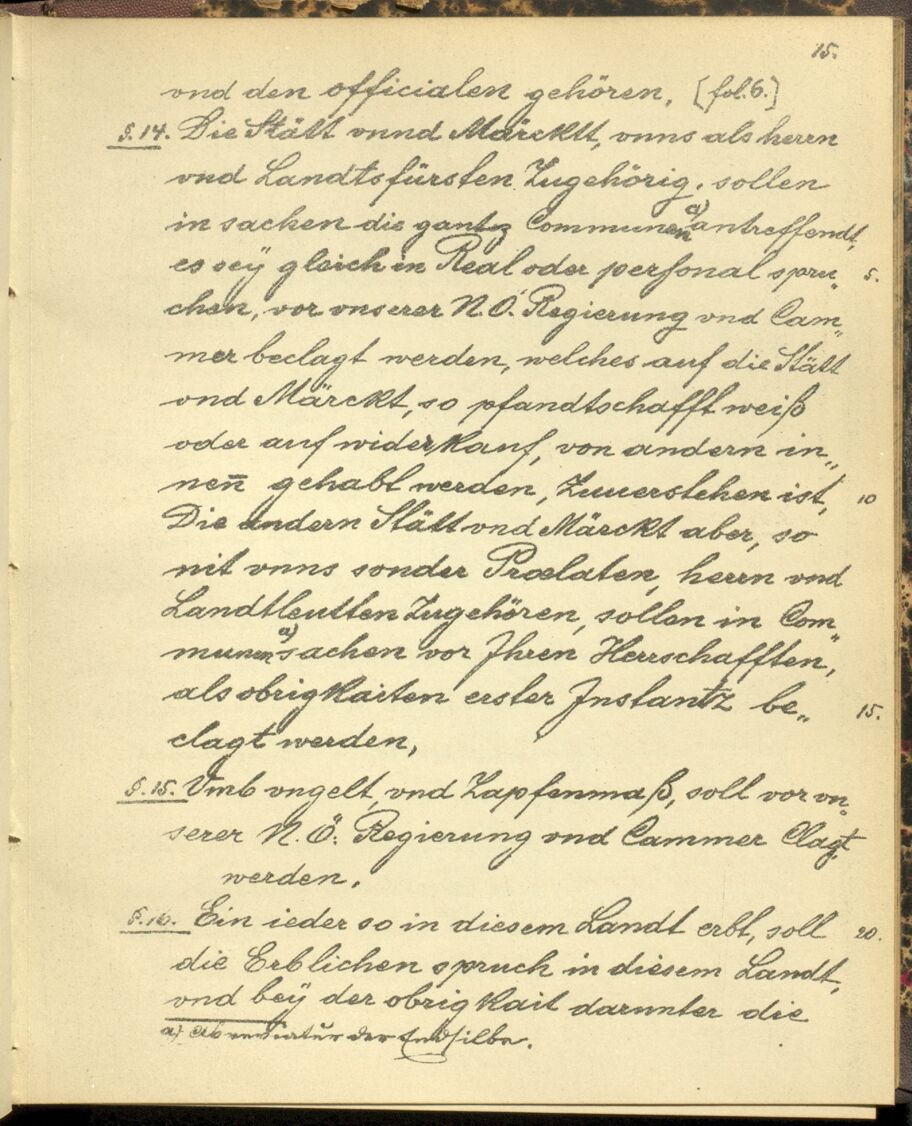 15.
vnd den officialen gehören. [fol. 6.]
§. 14. Die Stätt vnnd Märcktt, vnns als herrn
vnd Landtsfürsten Zugehörig, sollen
in sachen die gantz Communen a) antreffendt,
es seÿ gleich in Real oder personal sprü„ 5.
chen, vor vnserer N. Ö. Regierung vnd Cam„
mer beclagt werden, welches auf die Stätt
vnd Märckt, so pfandtschafft weiß
oder auf widerkauf, von andern in„
nen̄ gehabt werden, Zuuerstehen ist, 10
Die andern Stätt vnd Märckt aber, so
nit vnns sonder Prælaten, herrn vnd
Landtleutten Zugehören, sollen in Com„
munen a) sachen vor Jhren Herrschafften,
als obrigkaiten erster Jnstantz be„ 15.
clagt werden,
§. 15. Vmb vngelt, vnd Zapfenmaß, soll vor vn„
serer N. Ö. Regierung vnd Cammer Clagt
werden.
§. 16. Ein ieder so in diesem Landt erbt, soll 20.
die Erblichen spruch in diesem Landt,
vnd beÿ der obrigkait darunter die
a) Abreviatur der Endsilbe.